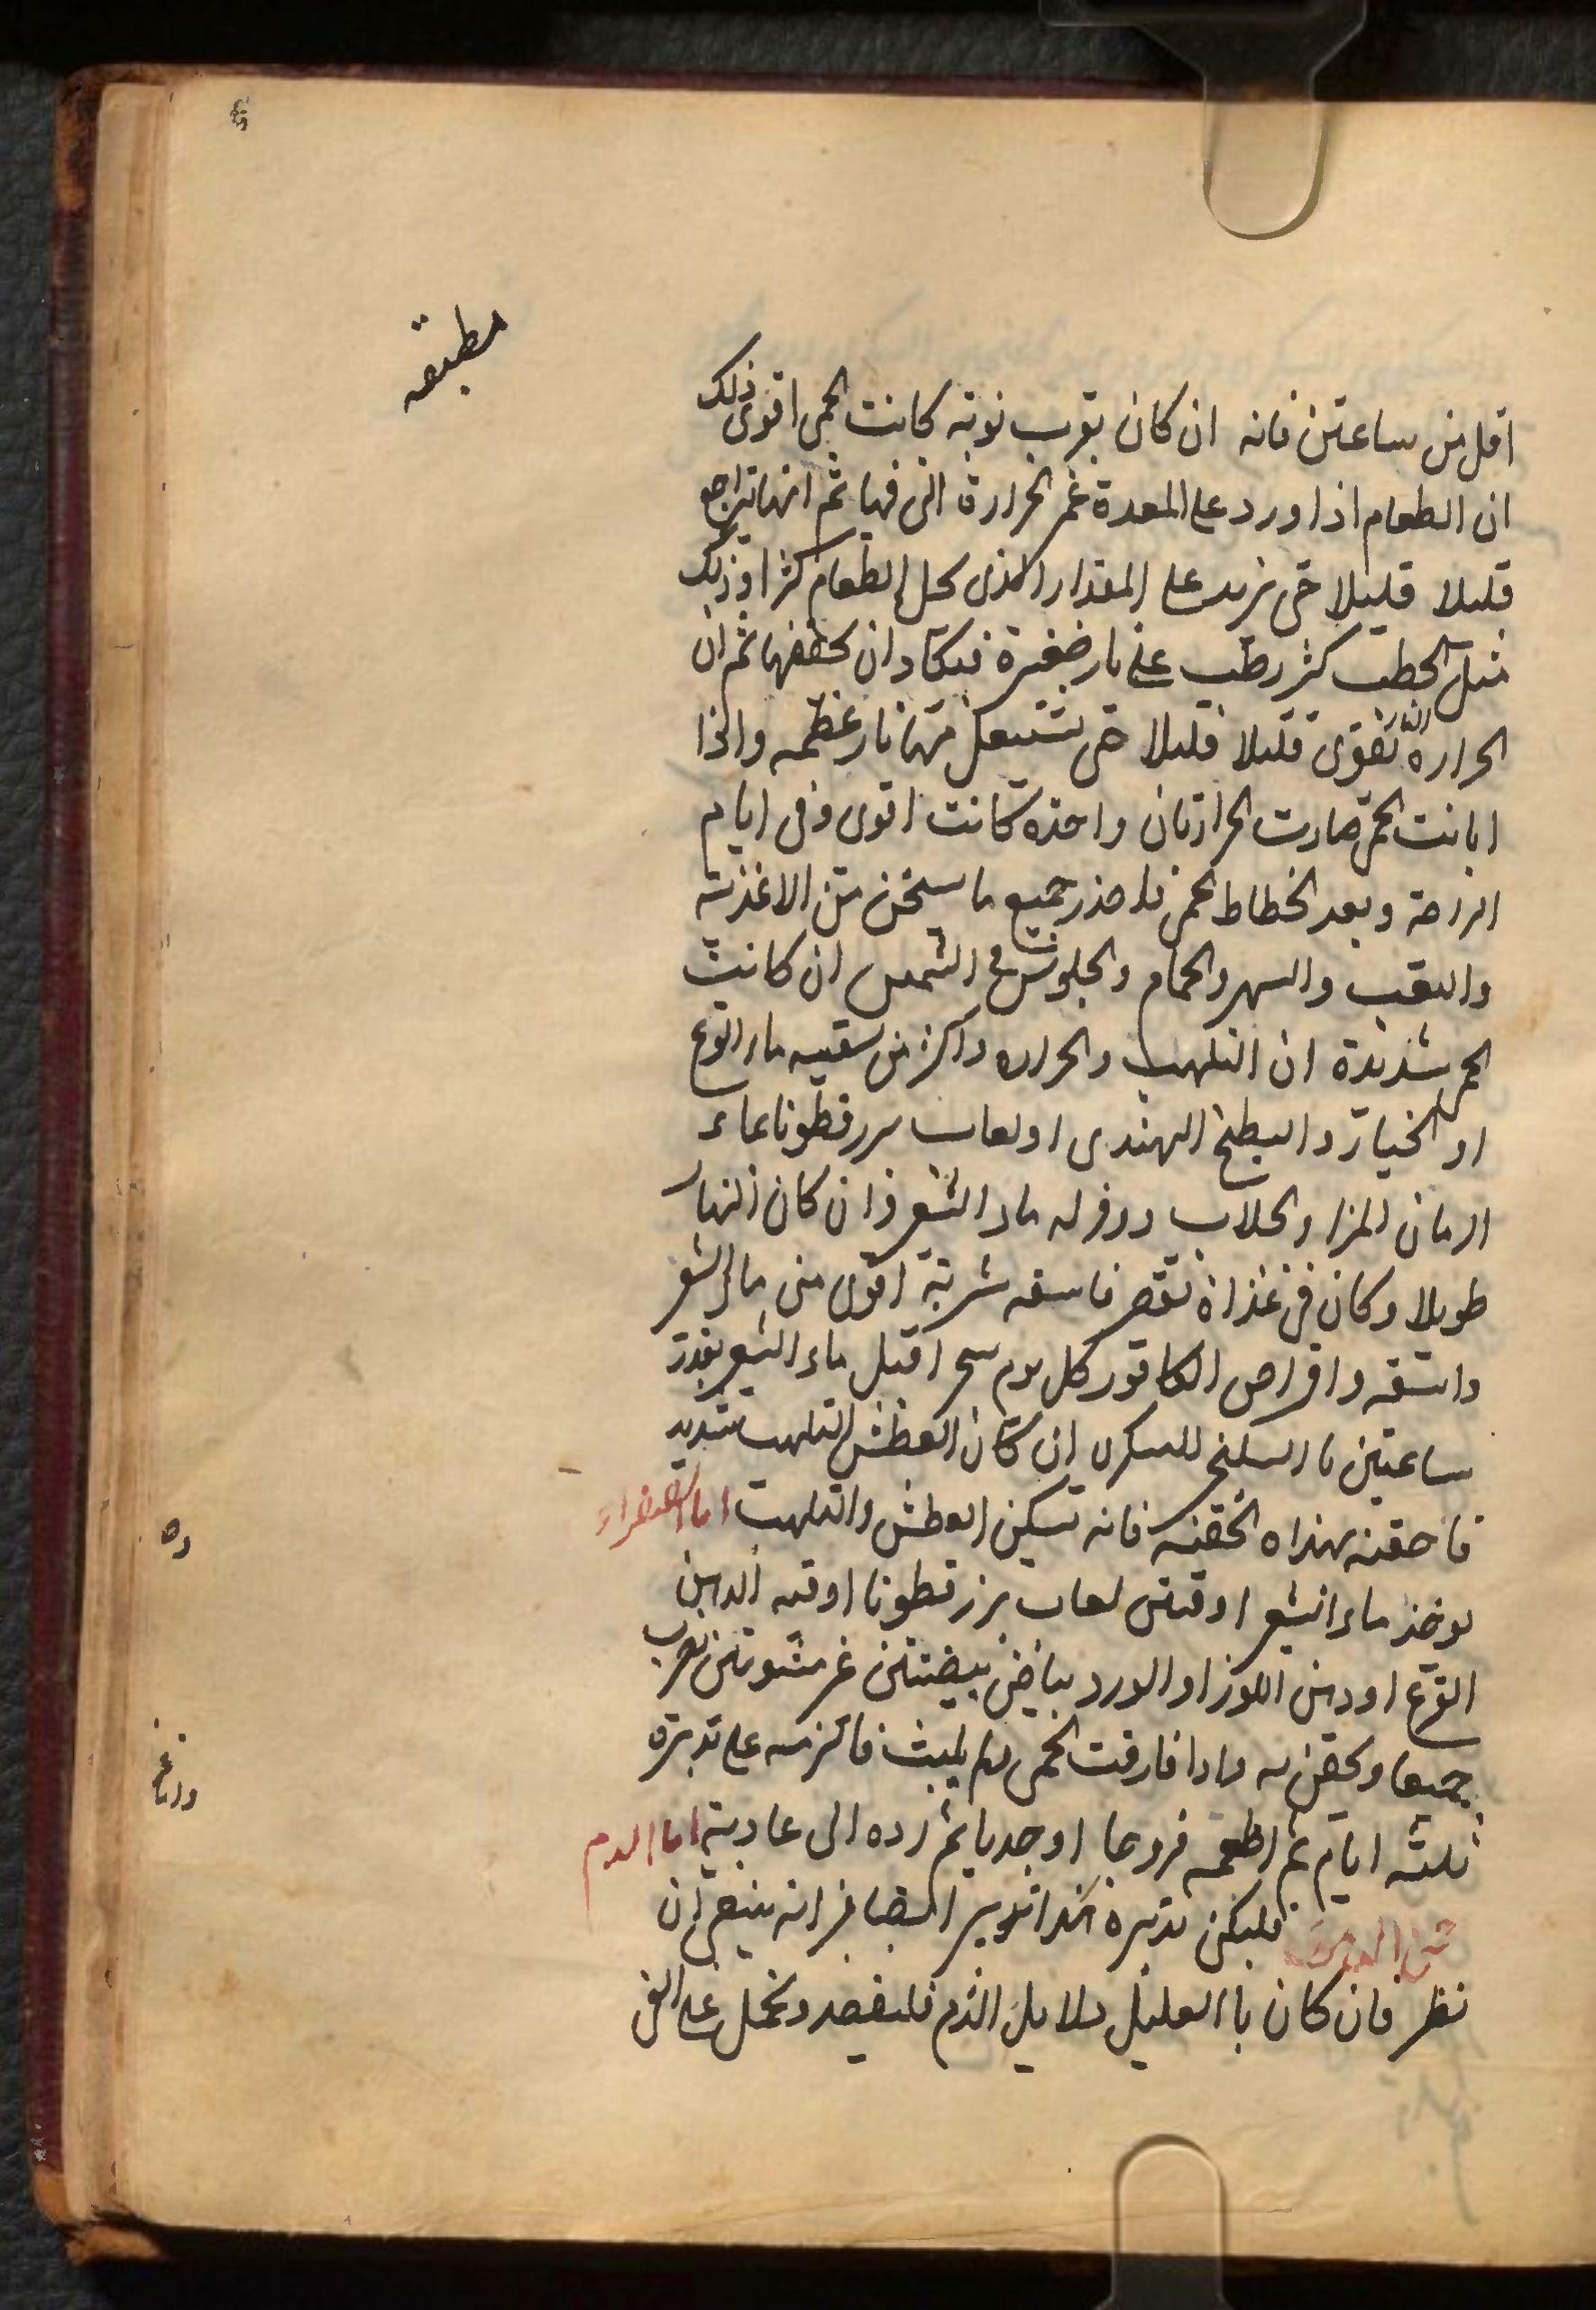 مطبقه
اقل من ساعتين فانه ان كان بقرب نوبته كانت الحمى اقوى ذلك
ان الطعام اذا ورد على المعدة غمر الحرارة التى فيها ثم انها تراجع
قليلا قليلا حتى تزيد على المقدار الذى يحل الطعام كثيرا وذلك
مثل الحطب كثير رطب على نار صغيرة فيكاد ان يحتقنها ثم ان
الحرارة النار تقوى قليلا قليلا حتى تشتعل منها نار عظيمه واذا
ابانت الحمى صارت الحرارتان واحده كانت اقوى وفى ايام
الراحة وبعد انحطاط الحمى فاحذر جميع ما يسخن من الاغذية
والتعب والسهر والحمام والجلوس فى الشمس ان كانت
الحمى شديدة ان التلهب والحراره فاكثر من سقيه ماء القرع
او الخيار والبطيخ الهندى او لعاب بزرقطونا بماء
الرمان المز والجلاب ودفر له ماء الشعير فان كان النهار
طويلا وكان فى غذاة نقص فاسقه شربة اقوى من ماء الشعير
واسقه واقراص الكافور كل يوم سحرا قبل ماء الشعير بقدر
ساعتين ماء السكنجبين السكرى ان كان العطش التلهب شديد
فاحقنه بهذاه الحقنه فانه تسكين العطش والتلهب اما الصفراء
يوخذ ماء الشعير اوقيتين لعاب بزرقطونا اوقيه الدهن
القرع او دهن اللوز او الورد بياض بيضتين غير مشويتين يضرب
جميعا ويحقن به واذا فارقت الحمى ولم يلبث فالزمه على تدبيره
ثلثه ايام ثم اطعمه فروجا او جديا ثم رده الى عادته اما الدم
فليكن تدبيره كذا تدبير الصا غير انه ينبغى ان
نظر فان كان با العليل دلايل الدم فليفصد ويحمل على القى